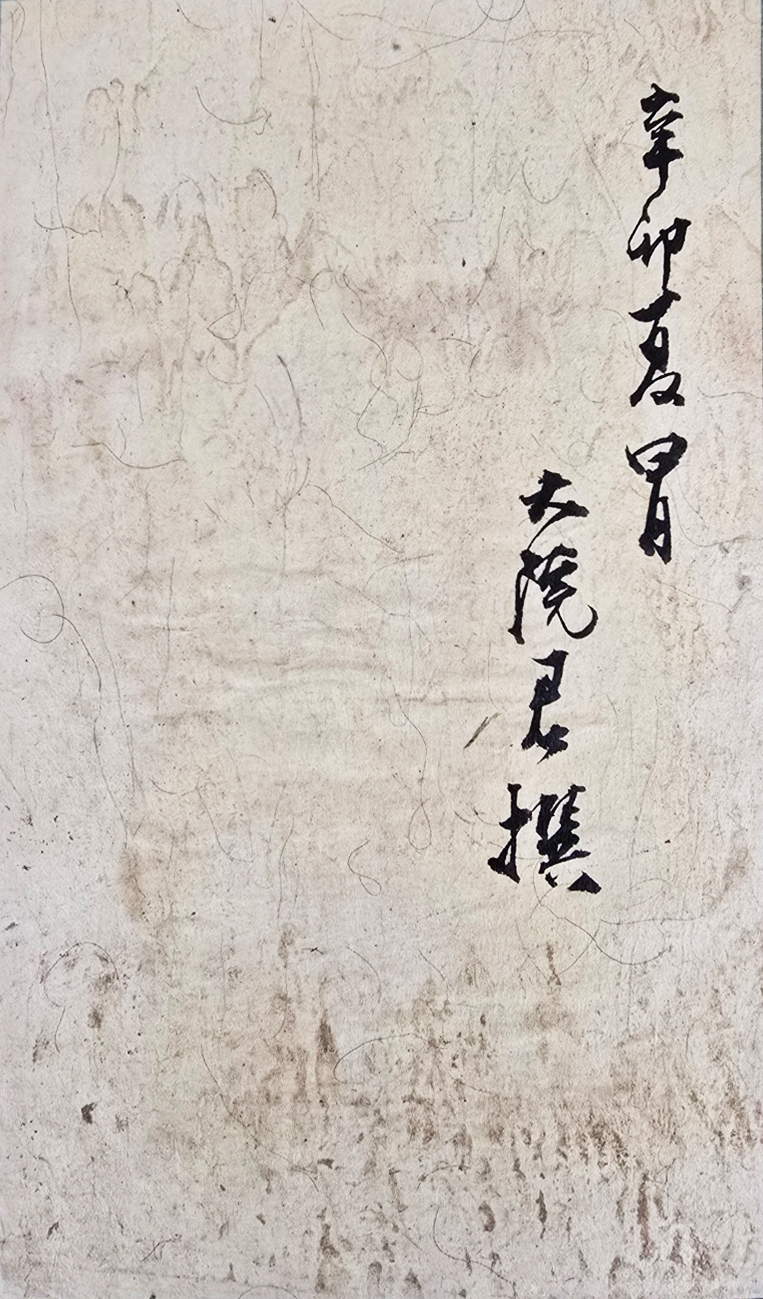 辛卯夏四月
大院君撰